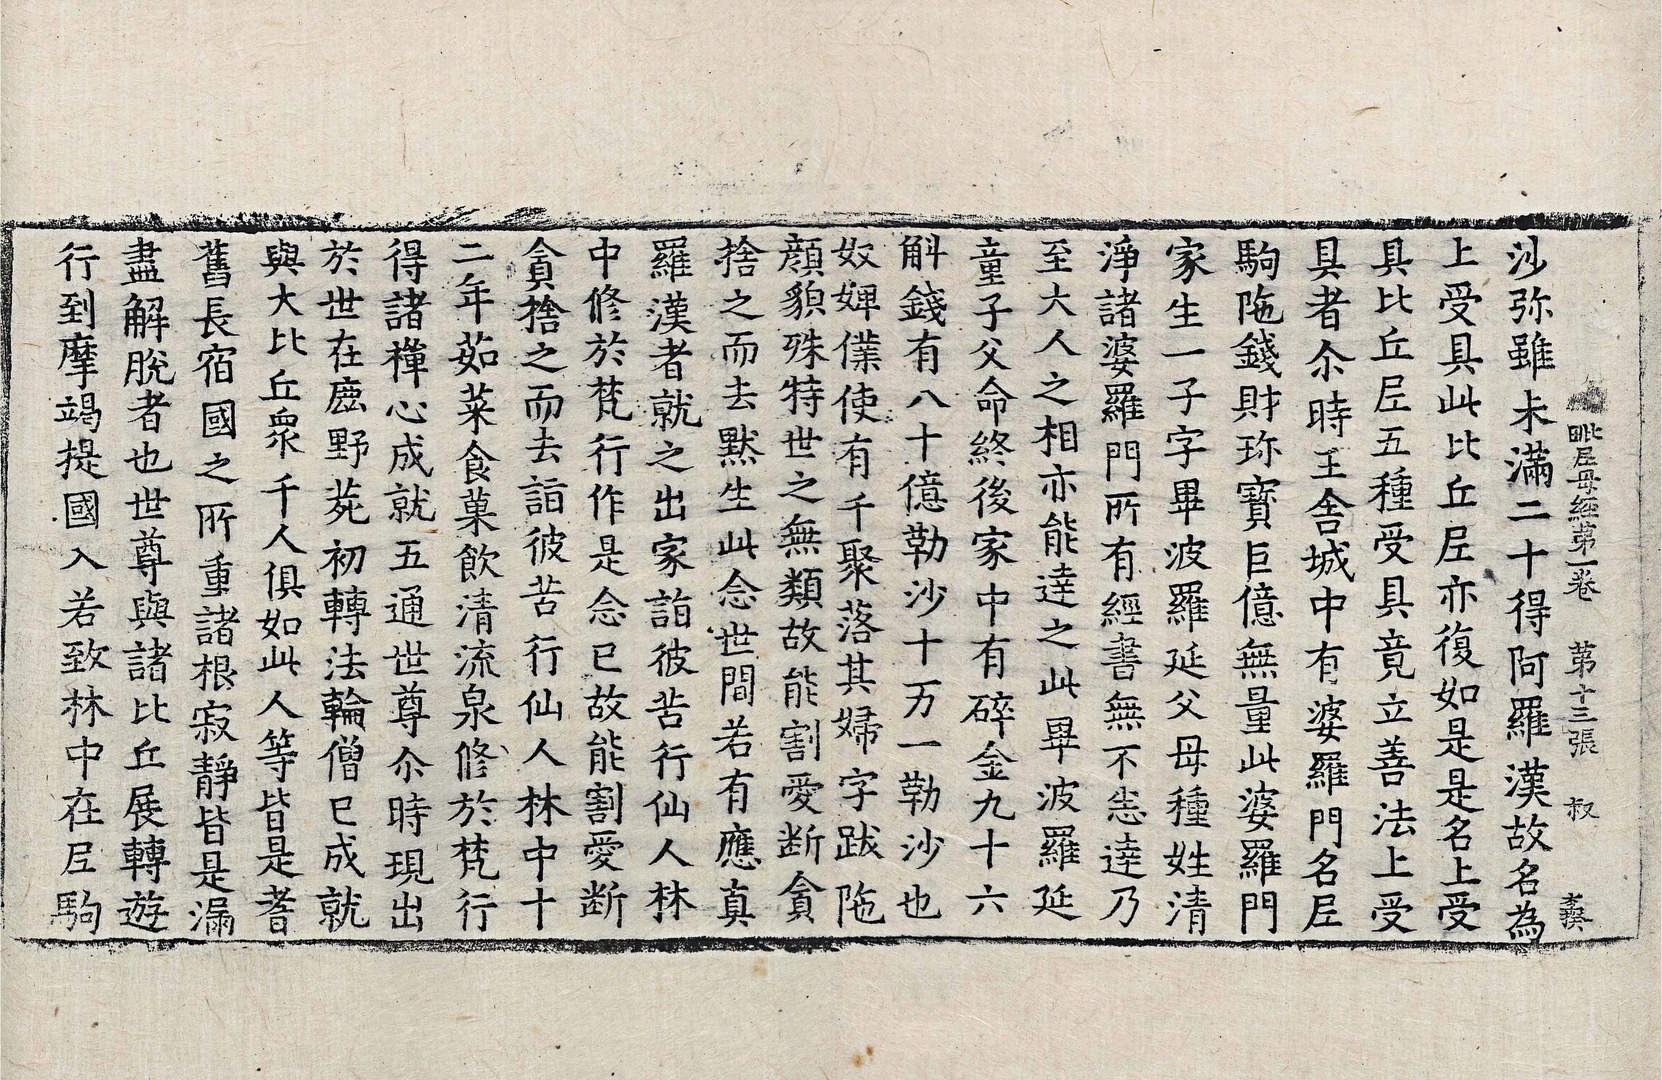 毗尼母經第一卷 第十三張 叔
沙弥雖未滿二十得阿羅漢故名為
上受具此比丘尼亦復如是是名上受
具比丘尼五種受具竟立善法上受
具者尒時王舍城中有婆羅門名尼
駒陁錢財珎寶巨億無量此婆羅門
家生一子字畢波羅延父母種姓清
淨諸婆羅門所有經書無不悉達乃
至大人之相亦能達之此畢波羅延
童子父命終後家中有碎金九十六
斛錢有八十億勒沙十万一勒沙也
奴婢僕使有千聚落其婦字跋陁
顔貌殊特世之無類故能割愛断貪
捨之而去黙生此念世間若有應真
羅漢者就之出家詣彼苦行仙人林
中修於梵行作是念已故能割愛断
貪捨之而去詣彼苦行仙人林中十
二年茹菜食菓飲清流泉修於梵行
得諸禪心成就五通世尊尒時現出
於世在鹿野菀初轉法輪僧已成就
與大比丘衆千人俱如此人等皆是耆
舊長宿國之所重諸根寂靜皆是漏
盡解脫者也世尊與諸比丘展轉遊
行到摩竭提國入若致林中在尼駒